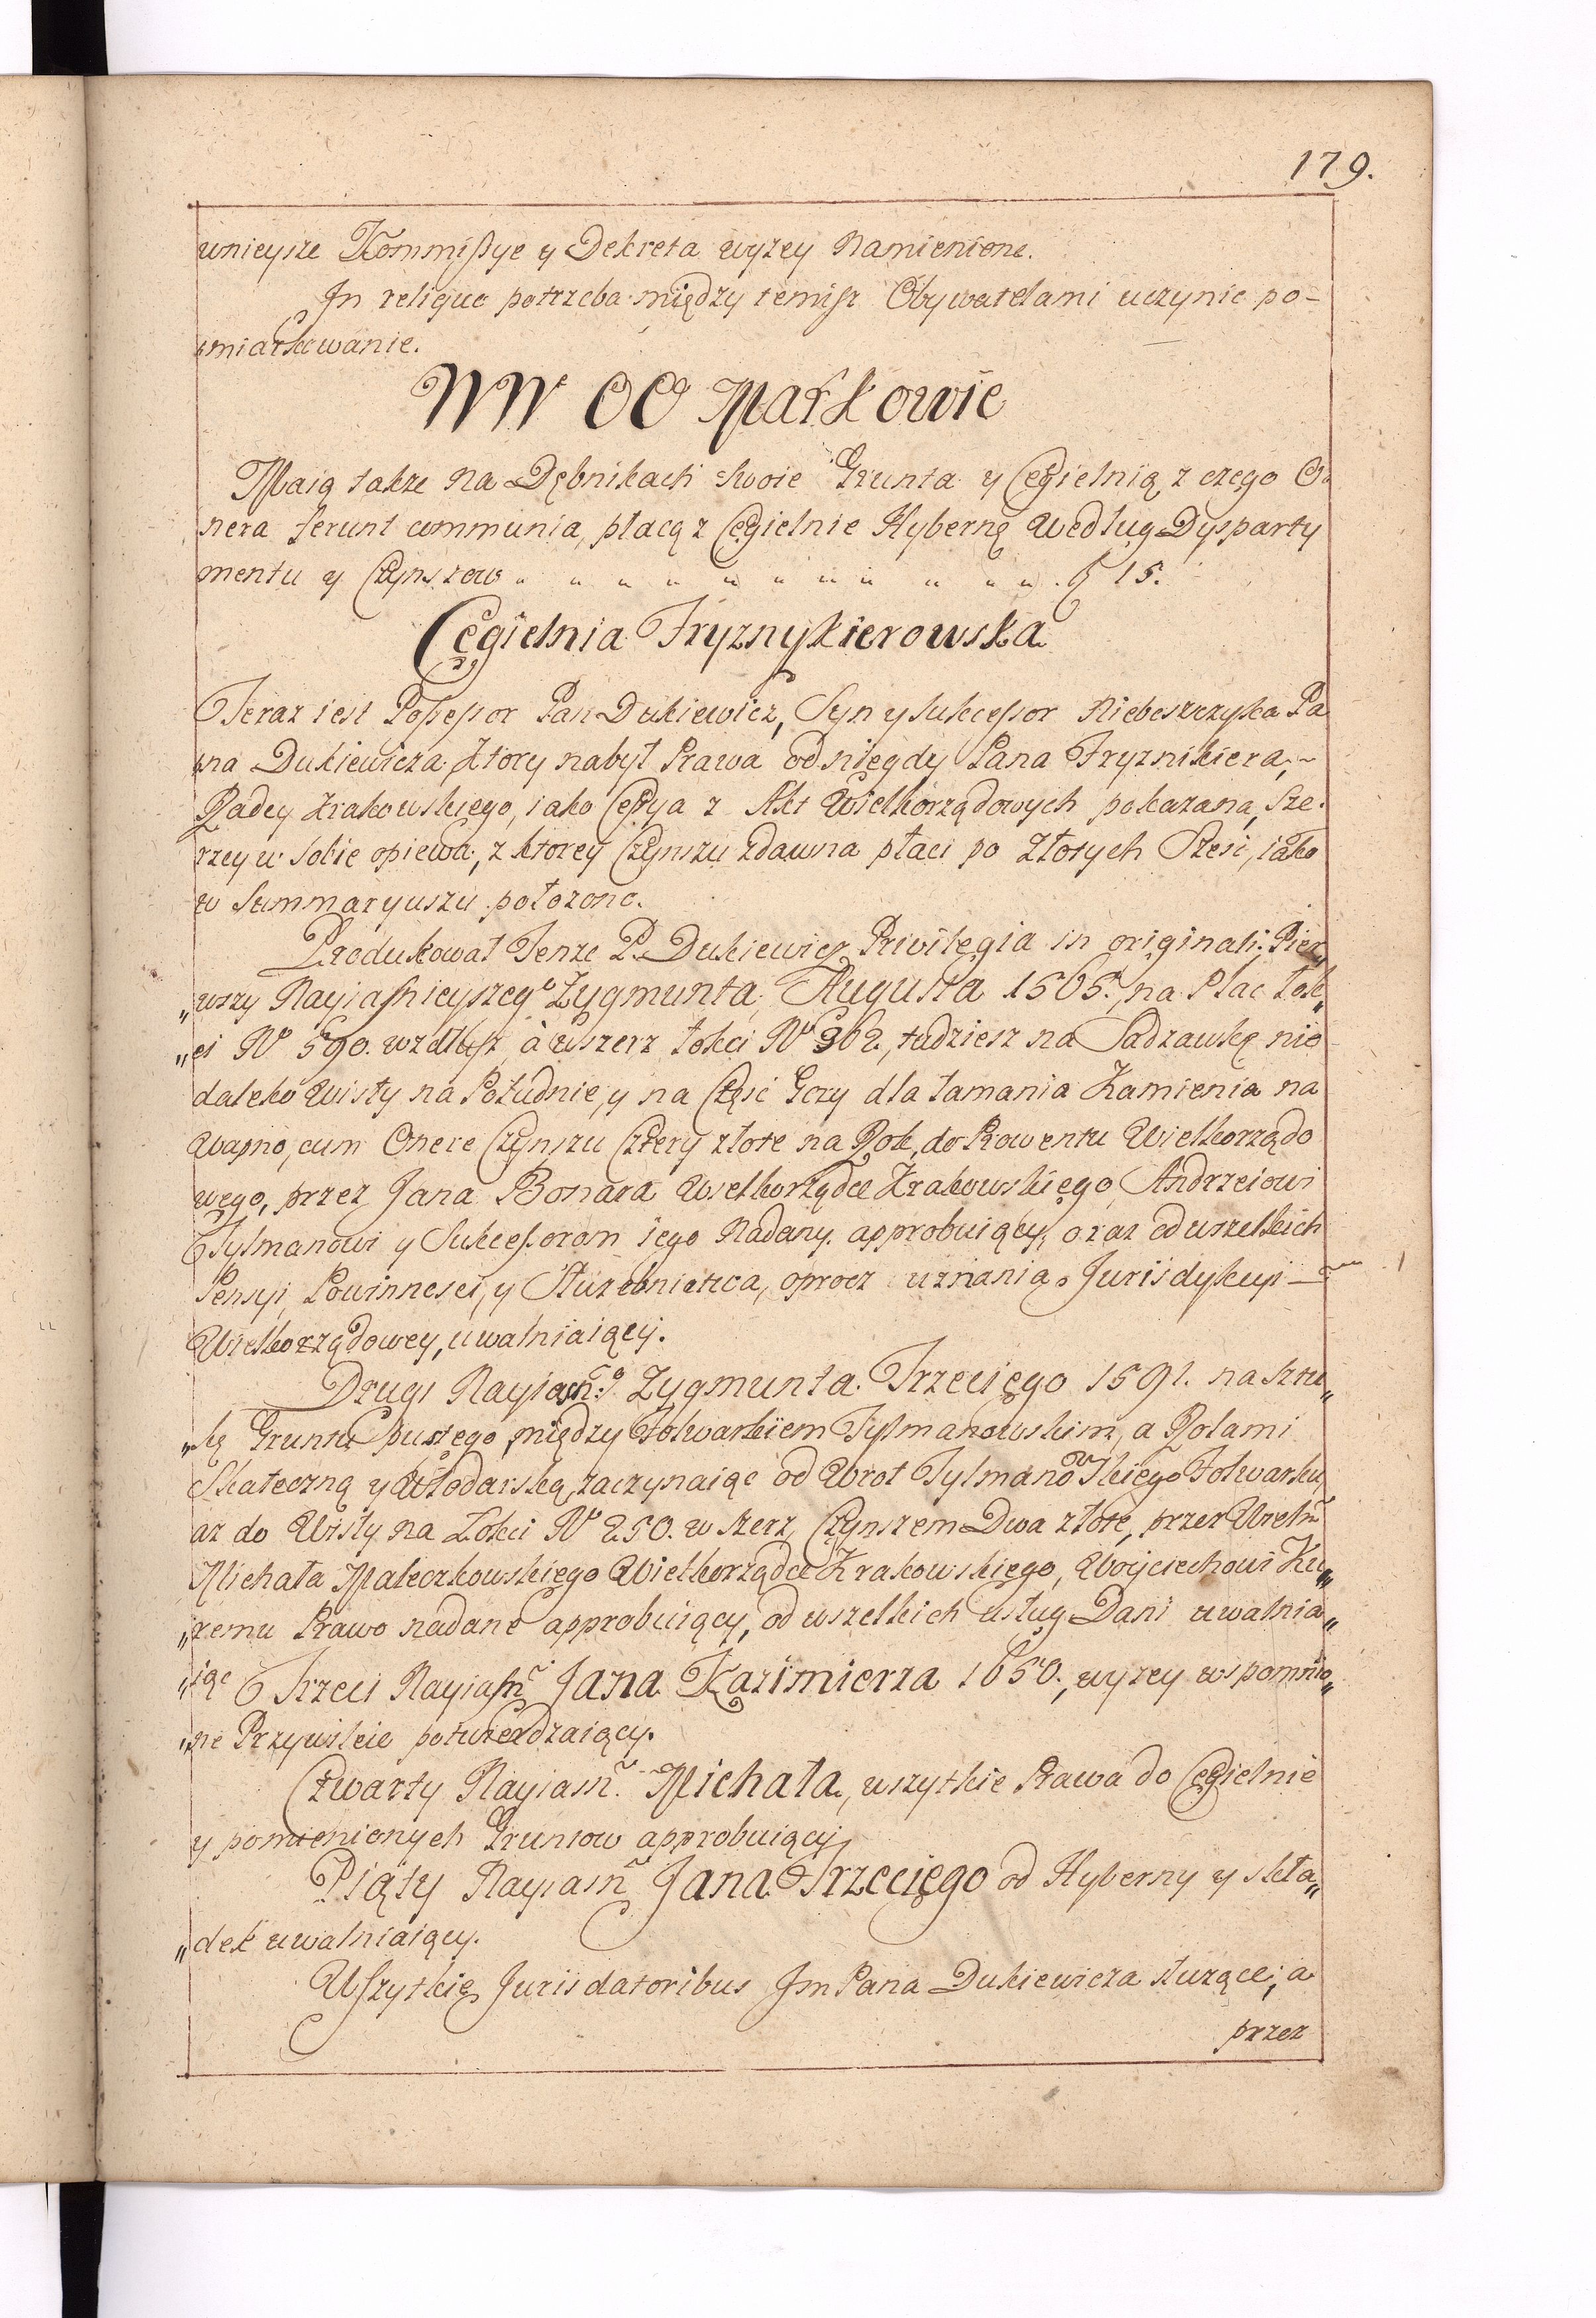 179.
wnieysze Kommißye y Dekreta wyzey Namienione.
In reliquo potrzeba między temisz Obywatelami uczynic po-
miarkowanie.
WW OO Markowie
Maią także Na Dębnikach swoie Grunta y Cegielnią z czego O-
nera ferunt communia, płacą z Cegielnie Hyberną Według Dysparty
mentu y Czynszow " " " " " " " " " " " " f 15.
Cegielnia Fryznykierowska
Teraz iest Possessor Pan Dukiewicz, Syn y Sukcessor Nieboszczyka Pa
na Dukiewicza, ktory nabył Prawa od niegdy Pana Fryznikiera,
Radcy Krakowskiego, iako Ceßya z Akt Wielkorządowych pokazana, Sze-
rzey w Sobie opiewa, z ktorey Czynszu zdawna płaci po Złotych Szesc, iako
w Summaryuszu położono.
Produkował Tenże P. Dukiewicz Privilegia in originali; Pier„
„wszy Nayiaśnieyszego Zygmunta Augusta 1565. na Plac Łok„
„ci No 590. wzdłusz, à wszerz łokci No 362., tudziesz na Sadzawkę nie
daleko Wisły na Południe, y na Część Gory dla łamania Kamienia na
Wapno, cum Onere Czynszu Cztery złote na Rok, do Prowentu Wielkorządo
wego, przez Jana Bonara Wielkorządcę Krakowskiego Andrzeiowi
Tylmanowi y Sukcessorom iego Nadany approbuiący, oraz od wszelkich
Pensyi, Powinności, y Służebnictwa, oprocz uznania Jurisdykcyi
Wielkorządowey, uwalniaiący.
Drugi Nayiaśn:go Zygmunta Trzeciego 1591. na sztu„
„kę Gruntu pustego między Folwarkiem Tylmanowskim, a Rolami
Skateczną y Włodarską zaczynaiąc od Wrot Tylmanowskiego Folwarku,
az do Wisły na Łokci No 250. w szerz, Czynszem Dwa złote, przez Urodz
Michała Maleczkowskiego Wielkorządcę Krakowskiego, Woyciechowi Ku„
„remu Prawo nadane approbuiący, od wszelkich usług Dani uwalnia„
„iąc Trzeci Nayiaśn Jana Kazimierza 1650., wyzey wspomnio„
„ne Przywileie potwierdzaiący.
Czwarty Nayiasn. Michała, wszytkie Prawa do Cegielnie
y pomienionych Gruntow approbuiący.
Piąty Nayiasn Jana Trzeciego od Hyberny y skła„
„dek uwalniaiący.
Wszytkie Jurisdatoribus Jm Pana Dukiewicza służące; a
przez